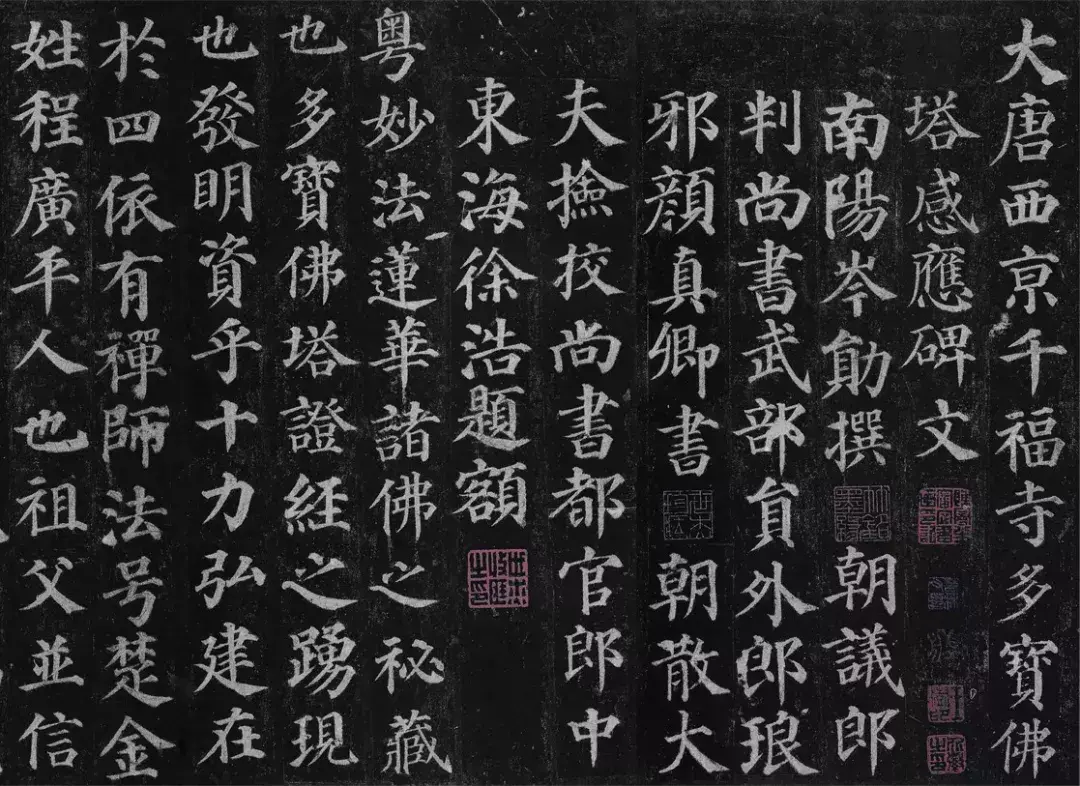 大唐西亰千福寺多寶佛
塔感應碑文
南陽岑勛撰 朝議郎
判尚書武部貟外郎琅
邪顏真卿書 朝散大
夫撿挍尚書都官郎中
東海徐浩題額
粵妙法蓮華諸佛之秘藏
也多寶佛塔證經之踴現
也發明資乎十力弘建在
於四依有禪師法号楚金
姓程廣平人也祖父並信